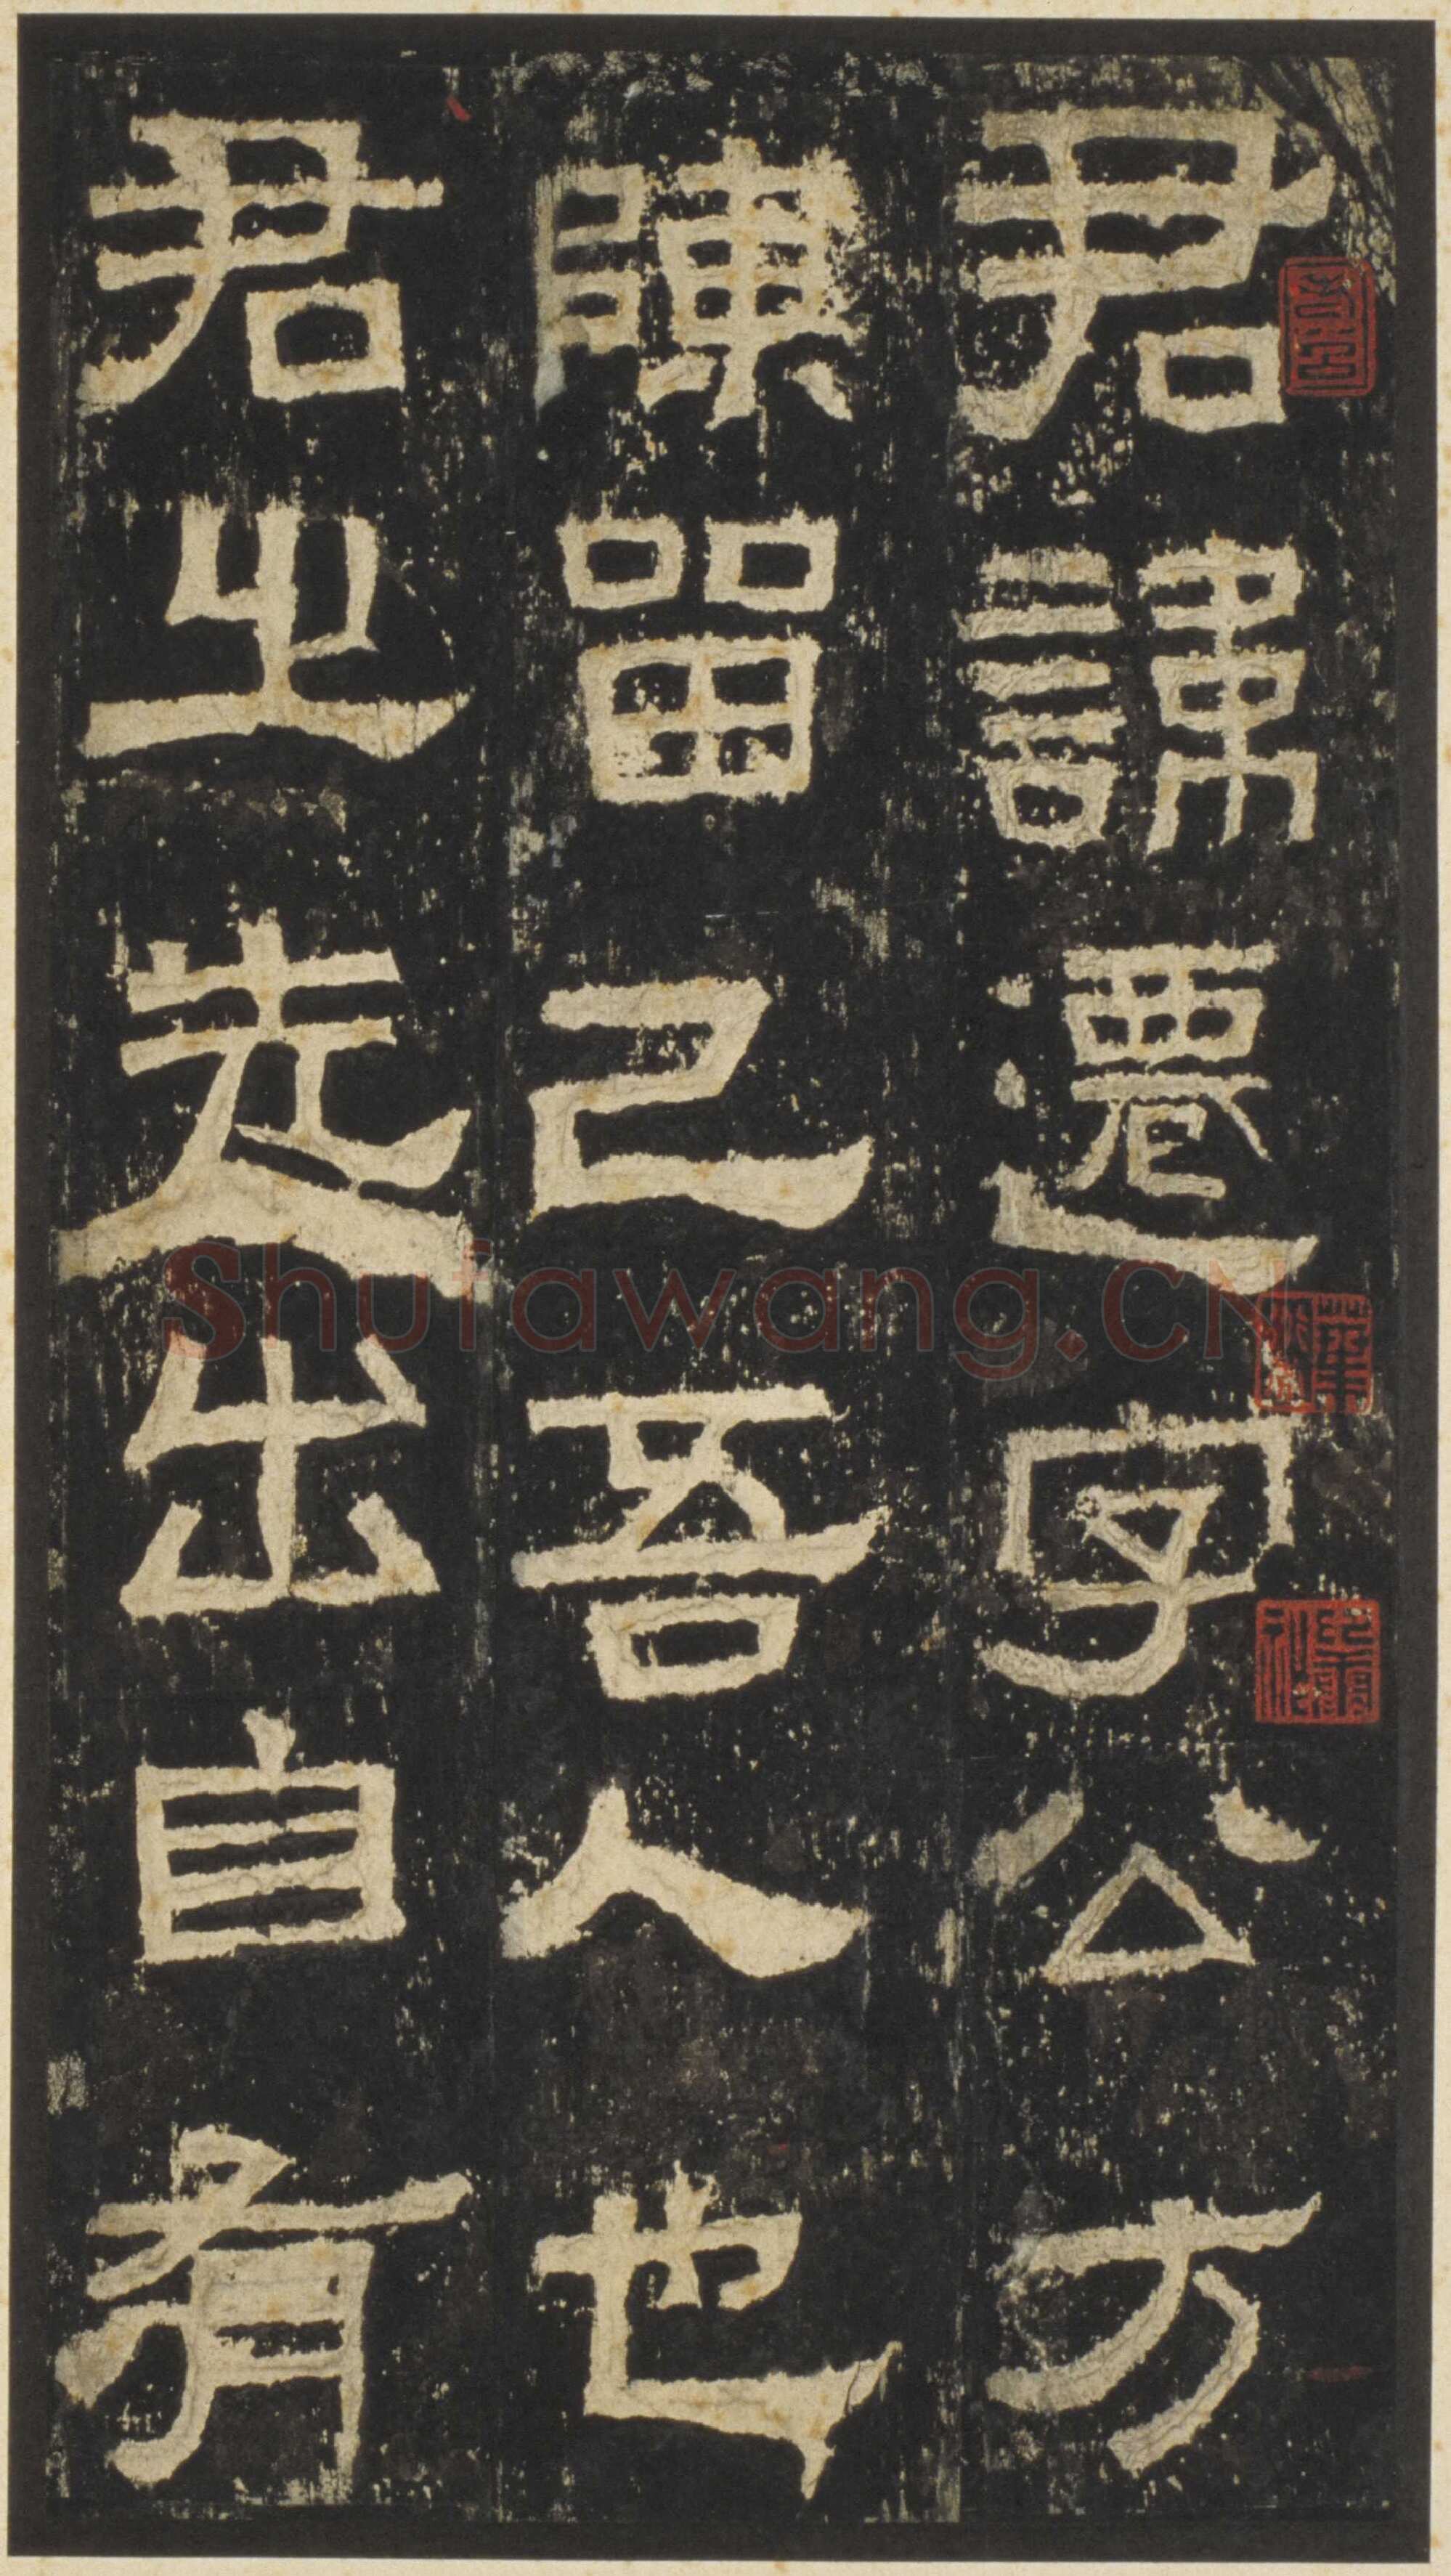 君諱遷字公方
陳留己吾人也
君之先出自有
Shufawang.CN